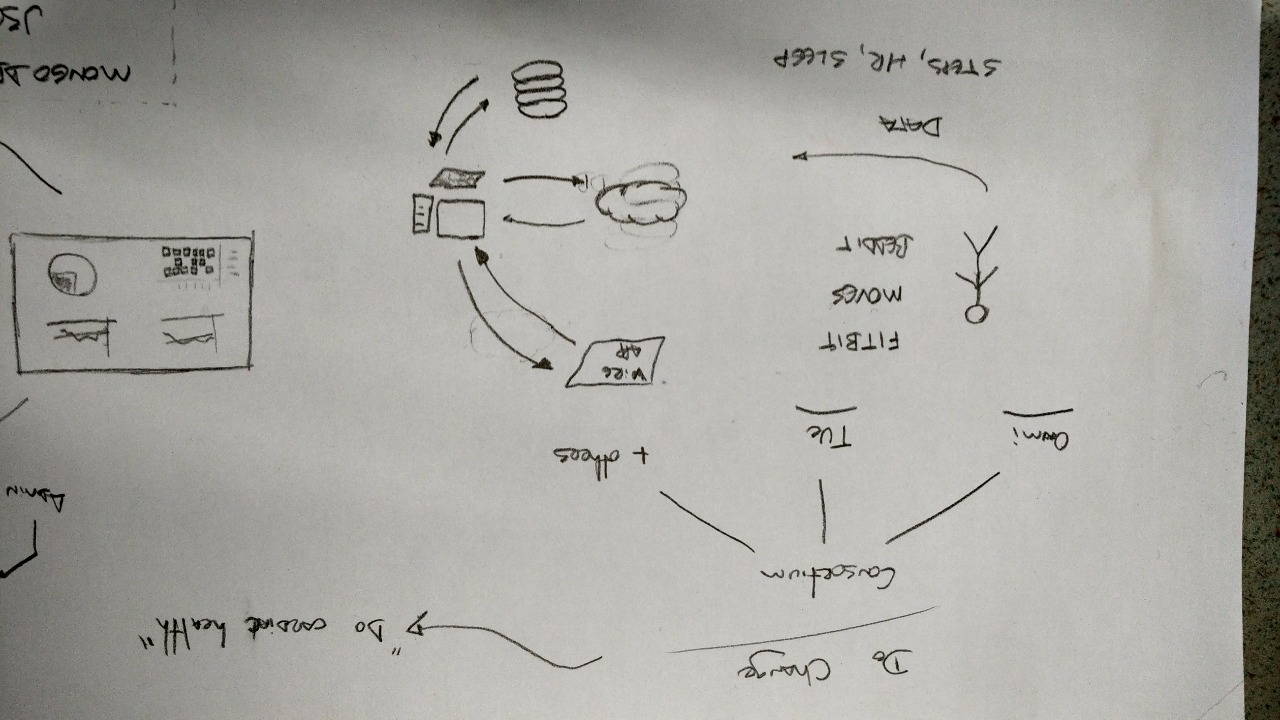 Do Change
"Do cardiac health"
Consortium
Onmi
TUe
+ others
ADMIN
FITBIT
MOVES
BEDDIT
WIRE
APP
DATA
STEPS, HR, SLEEP
MONGO DB
JSO